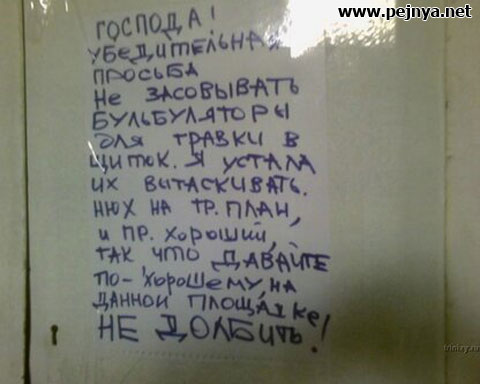 www.pejnya.net
ГОСПОДА!
УБЕДИТЕЛЬНАЯ
ПРОСЬБА
НЕ ЗАСОВЫВАТЬ
БУЛЬБУЛЯТОРЫ
ДЛЯ ТРАВКИ В
ЩИТОК. Я УСТАЛА
ИХ ВЫТАСКИВАТЬ.
НЮХ НА ТР. ПЛАН,
И ПР. ХОРОШИЙ,
ТАК ЧТО ДАВАЙТЕ
ПО-ХОРОШЕМУ, НА
ДАННОЙ ПЛОЩАДКЕ!
НЕ ДОЛБИТЬ!